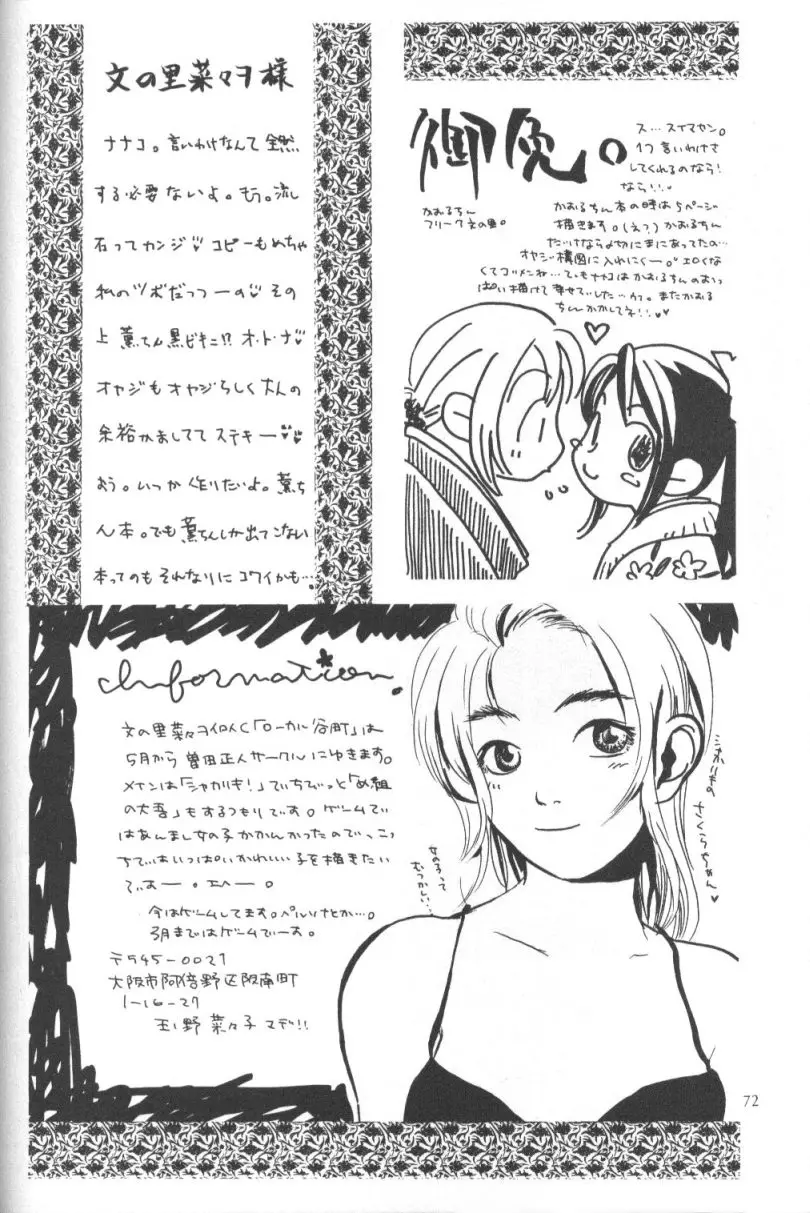 文の里菜々ヲ様
ナナコ。言いわけなんて全然
する必要ないよ。もう。流
石ってカンジ♡ コピーもめちゃ
私のツボだっつーの♡ その
上 薫ちん黒ビキニ!? オ・ト・ナ♡
オヤジもオヤジらしく大人の
余裕かましてて ステキー♡
おう。いつか作りたいよ。薫ち
ん本。でも薫ちんしか出てこない
本ってのもそれなりにコワイかも…。
御免。
かおるちん
フリーク文の里。
ス…スイマセン。
1つ言いわけさ
してくれるのなら!
なら!!♡
かおるちん本の時は5ページ
描きます。(え?)かおるちん
だけなら〆切にまにあってたの…
オヤジ構図に入れにくー。エロくな
くてゴメンね…でもナナコはかおるちんのおっ
ぱい描けて幸せでした…。またかおる
ちんかかしてネ!!♡
Information.
文の里菜々ヲイロイC「ローカル谷町」は
5月から曽田正人サークルにゆきます。
メインは「シャカリキ!」でちびっと「め組
の大吾」もするつもりです。ゲームで
はあんまし女の子かかんかったので、こっ
ちではいっぱいかわいい子を描きたい
でぃすー。エヘー。
今はゲームしてます。ペルソナとか…。
3月まではゲームでーす。
〒545-0021
大阪市阿倍野区阪南町
1-16-27
玉ノ野菜々子マデ!!
女の子って
むつかしい…
シャカリキの
さくらちゃん♡
72